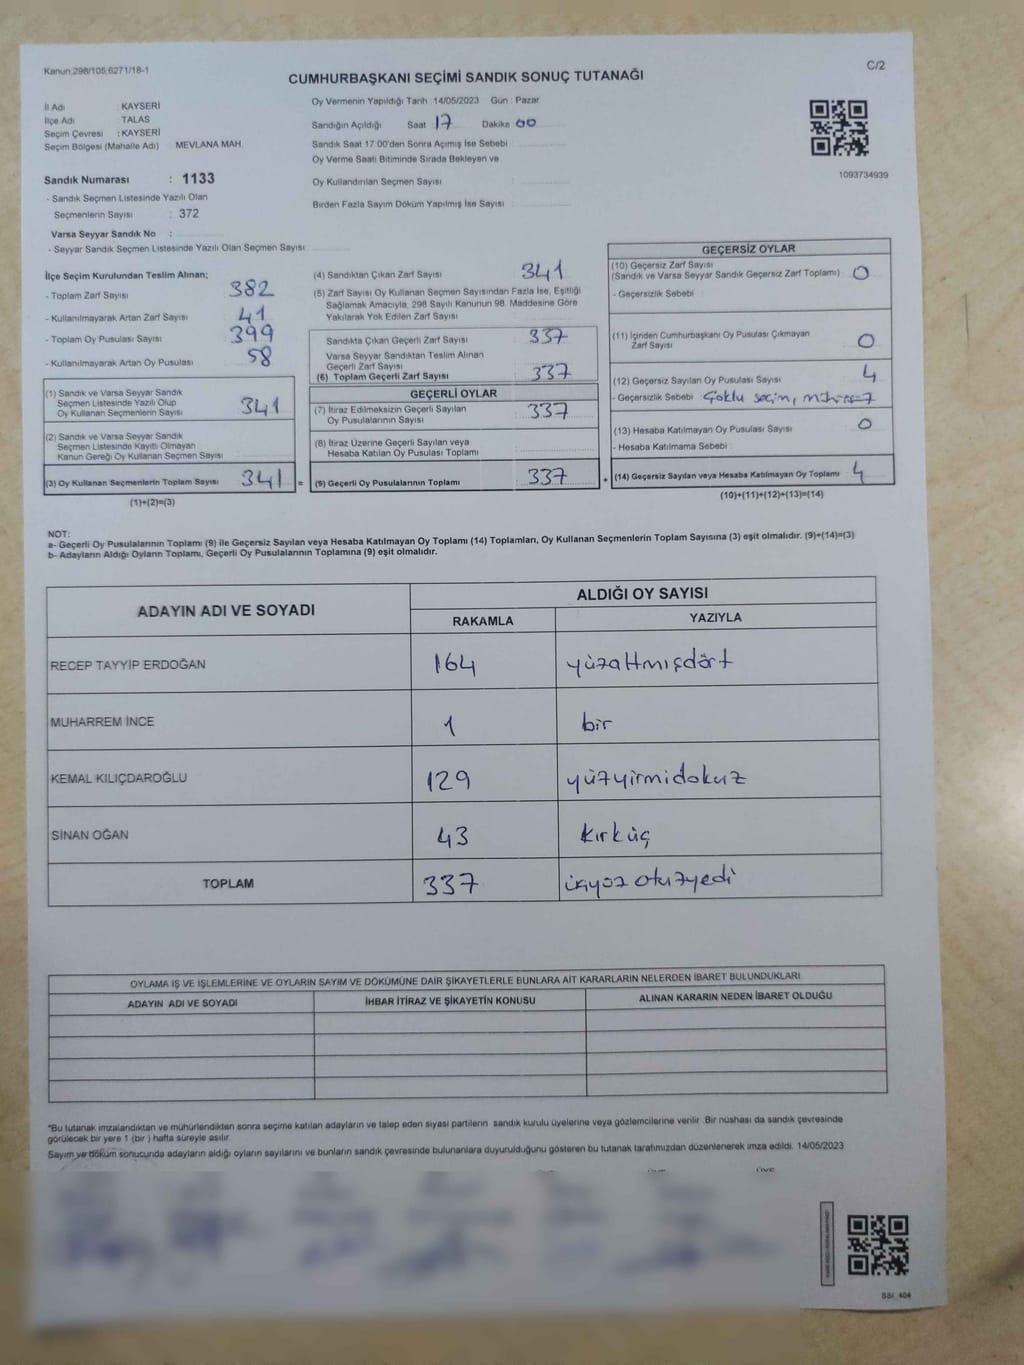 Kanun:298/105;6271/18-1
C/2
CUMHURBAŞKANI SEÇİMİ SANDIK SONUÇ TUTANAĞI
İl Adı : KAYSERİ
İlçe Adı : TALAS
Seçim Çevresi : KAYSERİ
Seçim Bölgesi (Mahalle Adı) : MEVLANA MAH.
Sandık Numarası : 1133
- Sandık Seçmen Listesinde Yazılı Olan
Seçmenlerin Sayısı : 372
Varsa Seyyar Sandık No :
- Seyyar Sandık Seçmen Listesinde Yazılı Olan Seçmen Sayısı
Oy Vermenin Yapıldığı Tarih 14/05/2023 Gün : Pazar
Sandığın Açıldığı Saat 17 Dakika 00
Sandık Saat 17:00'den Sonra Açımış İse Sebebi
Oy Verme Saati Bitiminde Sırada Bekleyen ve
Oy Kullandırılan Seçmen Sayısı
Birden Fazla Sayım Döküm Yapılmış İse Sayısı
1093734939
İlçe Seçim Kurulundan Teslim Alınan;
- Toplam Zarf Sayısı 382
- Kullanılmayarak Artan Zarf Sayısı 41
- Toplam Oy Pusulası Sayısı 399
- Kullanılmayarak Artan Oy Pusulası 58
(1) Sandık ve Varsa Seyyar Sandık
Seçmen Listesinde Yazılı Olup
Oy Kullanan Seçmenlerin Sayısı 341
(2) Sandık ve Varsa Seyyar Sandık
Seçmen Listesinde Kayıtlı Olmayan
Kanun Gereği Oy Kullanan Seçmen Sayısı
(3) Oy Kullanan Seçmenlerin Toplam Sayısı 341 =
(1)+(2)=(3)
(4) Sandıktan Çıkan Zarf Sayısı 341
(5) Zarf Sayısı Oy Kullanan Seçmen Sayısından Fazla İse, Eşitliği
Sağlamak Amacıyla, 298 Sayılı Kanunun 98. Maddesine Göre
Yakılarak Yok Edilen Zarf Sayısı
Sandıkta Çıkan Geçerli Zarf Sayısı 337
Varsa Seyyar Sandıktan Teslim Alınan
Geçerli Zarf Sayısı
(6) Toplam Geçerli Zarf Sayısı 337
GEÇERLİ OYLAR
(7) İtiraz Edilmeksizin Geçerli Sayılan
Oy Pusulalarının Sayısı 337
(8) İtiraz Üzerine Geçerli Sayılan veya
Hesaba Katılan Oy Pusulası Toplamı
(9) Geçerli Oy Pusulalarının Toplamı 337 +
GEÇERSİZ OYLAR
(10) Geçersiz Zarf Sayısı
(Sandık ve Varsa Seyyar Sandık Geçersiz Zarf Toplamı) 0
- Geçersizlik Sebebi
(11) İçinden Cumhurbaşkanı Oy Pusulası Çıkmayan
Zarf Sayısı 0
(12) Geçersiz Sayılan Oy Pusulası Sayısı 4
- Geçersizlik Sebebi Çoklu seçim,
(13) Hesaba Katılmayan Oy Pusulası Sayısı 0
- Hesaba Katılmama Sebebi
(14) Geçersiz Sayılan veya Hesaba Katılmayan Oy Toplamı 4
(10)+(11)+(12)+(13)=(14)
NOT:
a- Geçerli Oy Pusulalarının Toplamı (9) ile Geçersiz Sayılan veya Hesaba Katılmayan Oy Toplamı (14) Toplamları, Oy Kullanan Seçmenlerin Toplam Sayısına (3) eşit olmalıdır. (9)+(14)=(3)
b- Adayların Aldığı Oyların Toplamı, Geçerli Oy Pusulalarının Toplamına (9) eşit olmalıdır.
ADAYIN ADI VE SOYADI
ALDIĞI OY SAYISI
RAKAMLA YAZIYLA
RECEP TAYYİP ERDOĞAN 164 yüzaltmışdört
MUHARREM İNCE 1 bir
KEMAL KILIÇDAROĞLU 129 yüzyirmidokuz
SİNAN OĞAN 43 kırküç
TOPLAM 337 üçyüz otuzyedi
OYLAMA İŞ VE İŞLEMLERİNE VE OYLARIN SAYIM VE DÖKÜMÜNE DAİR ŞİKAYETLERLE BUNLARA AİT KARARLARIN NELERDEN İBARET BULUNDUKLARI
ADAYIN ADI VE SOYADI İHBAR İTİRAZ VE ŞİKAYETİN KONUSU ALINAN KARARIN NEDEN İBARET OLDUĞU
*Bu tutanak imzalandıktan ve mühürlendikten sonra seçime katılan adayların ve talep eden siyasi partilerin sandık kurulu üyelerine veya gözlemcilerine verilir. Bir nüshası da sandık çevresinde
görülecek bir yere 1 (bir ) hafta süreyle asılır.
Sayım ve döküm sonucunda adayların aldığı oyların sayılarını ve bunların sandık çevresinde bulunanlara duyurulduğunu gösteren bu tutanak tarafımızdan düzenlenerek imza edildi. 14/05/2023